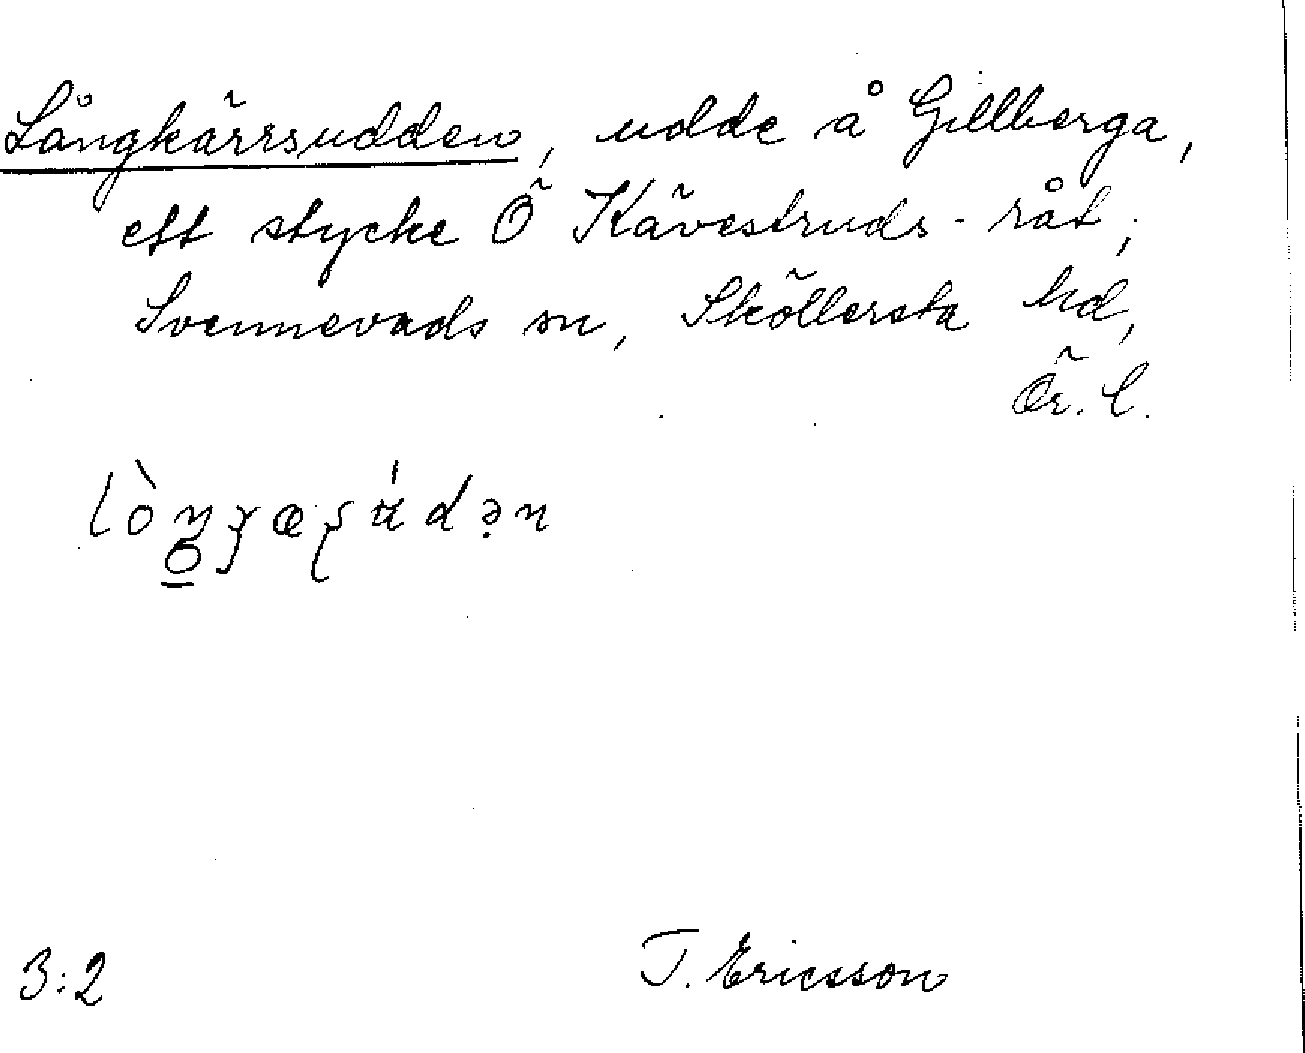 Långkärrsudden, udde å Gillberga,
ett stycke Ö Kävestruds-råt,
Svennevads sn, Sköllersta hd,
Ör. l.
3:2 T. Ericsson